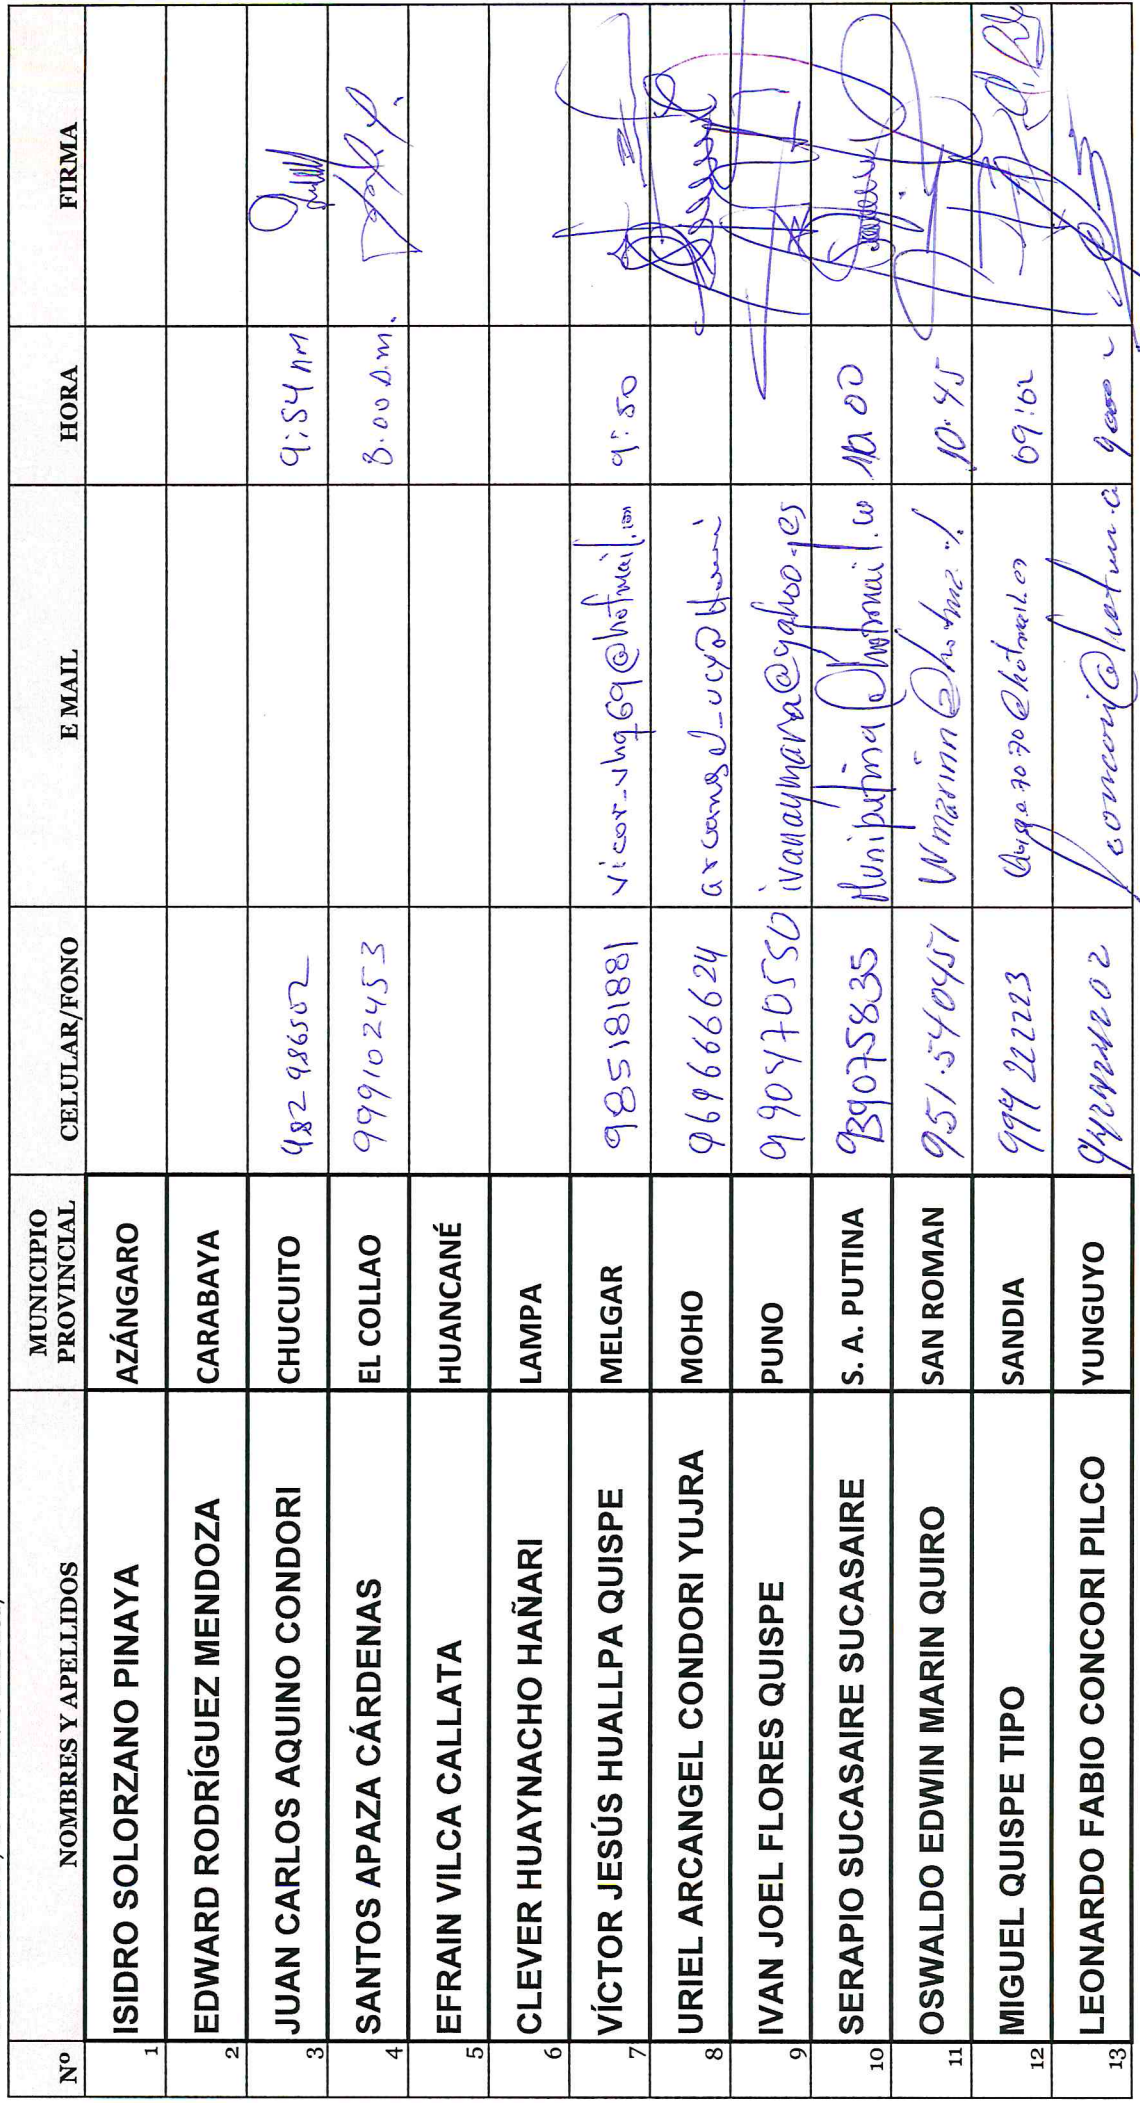 Nº NOMBRES Y APELLIDOS MUNICIPIO PROVINCIAL CELULAR/FONO E MAIL HORA FIRMA
1 ISIDRO SOLORZANO PINAYA AZÁNGARO
2 EDWARD RODRÍGUEZ MENDOZA CARABAYA
3 JUAN CARLOS AQUINO CONDORI CHUCUITO 982986502 9:54 AM
4 SANTOS APAZA CÁRDENAS EL COLLAO 999102453 8.00 a.m.
5 EFRAIN VILCA CALLATA HUANCANÉ
6 CLEVER HUAYNACHO HAÑARI LAMPA
7 VÍCTOR JESÚS HUALLPA QUISPE MELGAR 985181881 vicor_vhq69@hotmail.com 9:50
8 URIEL ARCANGEL CONDORI YUJRA MOHO 969666624
9 IVAN JOEL FLORES QUISPE PUNO 990470550 ivanaymara@yahoo.es
10 SERAPIO SUCASAIRE SUCASAIRE S. A. PUTINA 939075835 Muniputina@hotmail.co 10.00
11 OSWALDO EDWIN MARIN QUIRO SAN ROMAN 951.540451 10.45
12 MIGUEL QUISPE TIPO SANDIA 994222223 09:02
13 LEONARDO FABIO CONCORI PILCO YUNGUYO